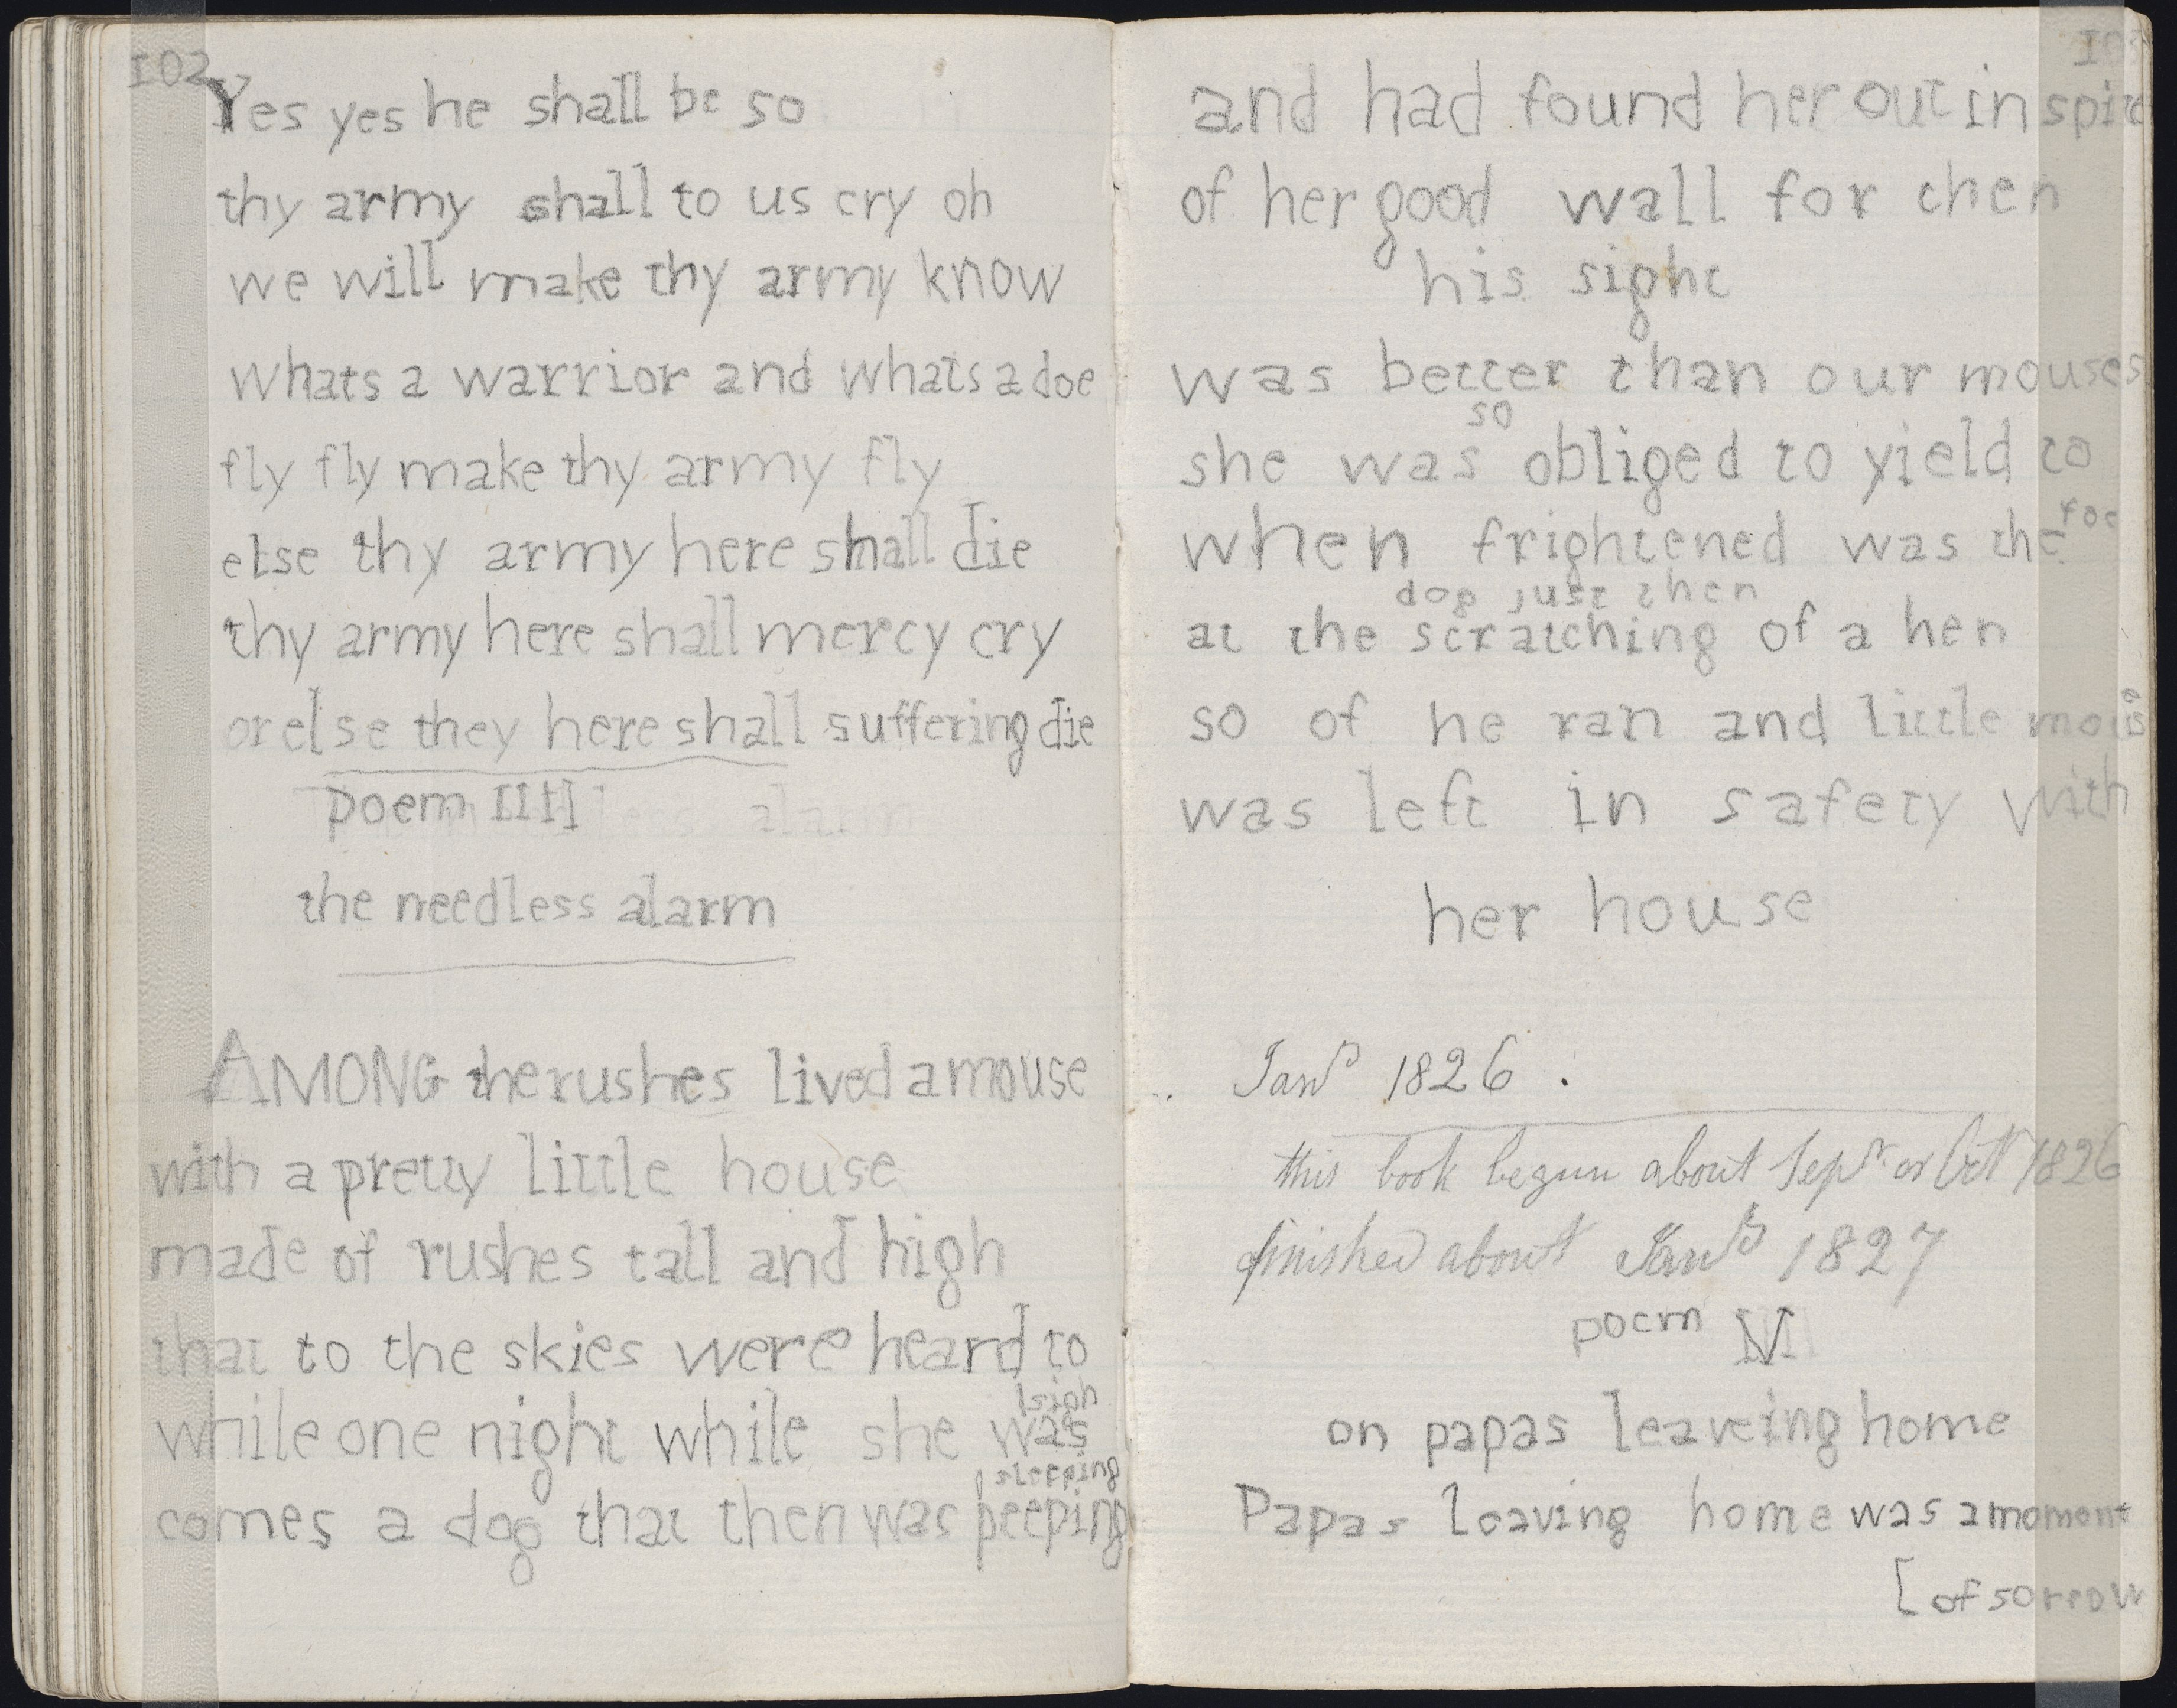 102
Yes yes he shall be so
thy army shall to us cry oh
we will make thy army know
whats a warrior and whats a doe
fly fly make thy army fly
else thy army here shall die
thy army here shall mercy cry
or else they here shall suffering die
poem III]
the needless alarm
AMONG the rushes lived a mouse
with a pretty little house
made of rushes tall and high
that to the skies were heard to
[sigh
while one night while she was
[sleeping
comes a dog that then was peeping
103
and had found her out in spite
of her good wall for then
his sight
was better than our mouses
so
she was obliged to yield to
foe
when frightened was the
dog just then
at the scratching of a hen
so of he ran and little mouse
was left in safety with
her house
Jany 1826.
this book begun about Sepr or Oct 1826
finished about Jany 1827
poem IV
on papas leaveing home
Papas leaving home was a moment
[of sorrow